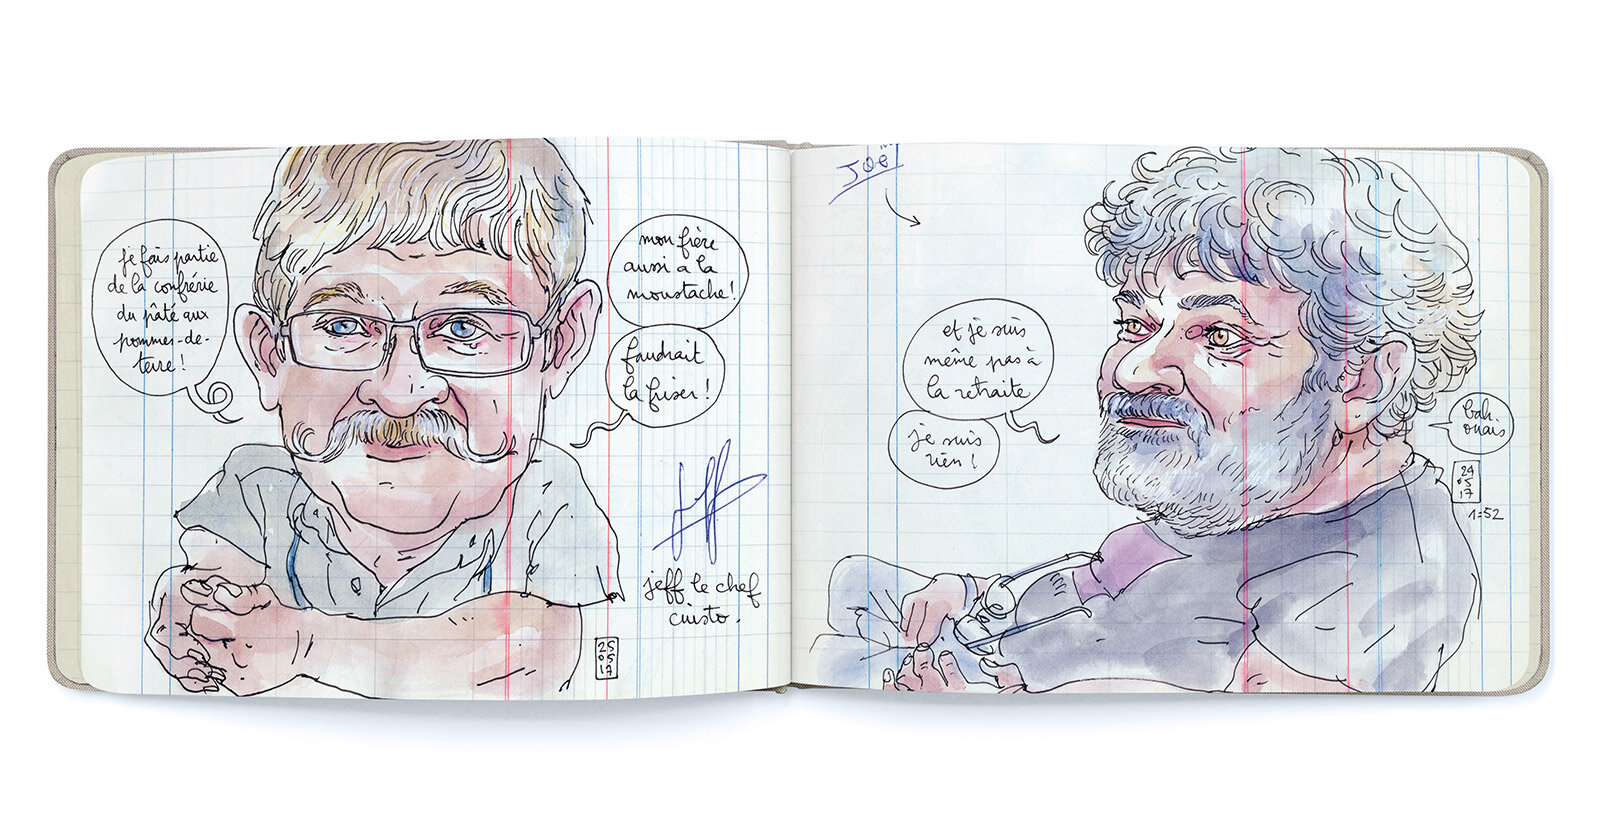 je fais partie
de la confrérie
du pâté aux
pommes-de-
terre !
mon frère
aussi a la
moustache !
faudrait
la friser !
Jeff
jeff le chef
cuisto.
25
05
17
Joël
et je suis
même pas à
la retraite
je suis
rien !
bah
ouais
24
05
17
1:52